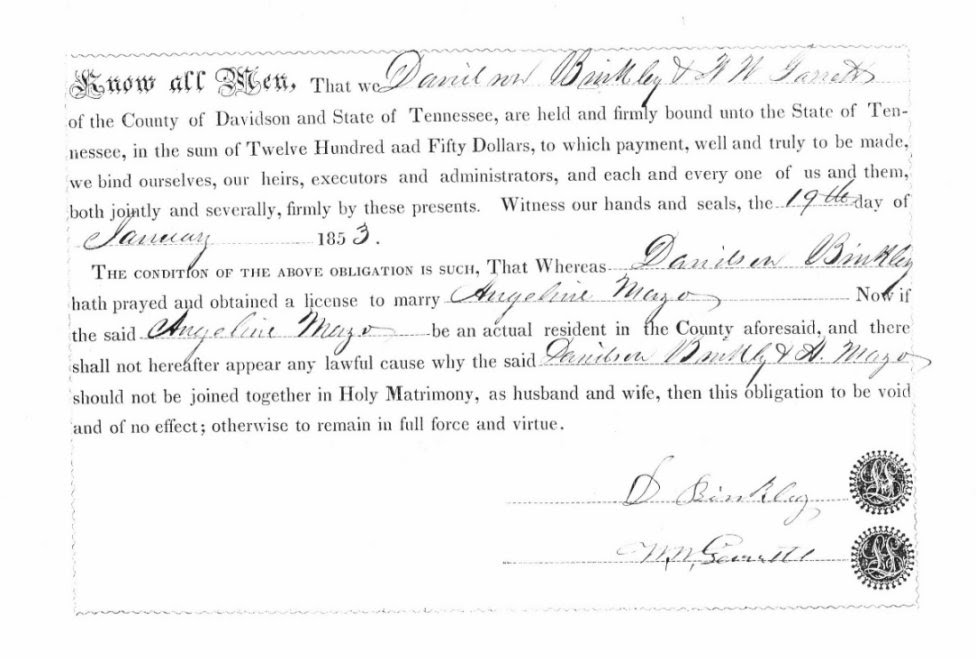 Know all Men, That we Davidson Binkley & W W Garrett
of the County of Davidson and State of Tennessee, are held and firmly bound unto the State of Ten-
nessee, in the sum of Twelve Hundred aad Fifty Dollars, to which payment, well and truly to be made,
we bind ourselves, our heirs, executors and administrators, and each and every one of us and them,
both jointly and severally, firmly by these presents. Witness our hands and seals, the 19th day of
January 1853.
THE CONDITION OF THE ABOVE OBLIGATION IS SUCH, That Whereas Davidson Binkley
hath prayed and obtained a license to marry Angeline Mazo Now if
the said Angeline Mazo be an actual resident in the County aforesaid, and there
shall not hereafter appear any lawful cause why the said Davidson Binkly & A. Mazo
should not be joined together in Holy Matrimony, as husband and wife, then this obligation to be void
and of no effect; otherwise to remain in full force and virtue.
D Binkley
W. W. Garrett